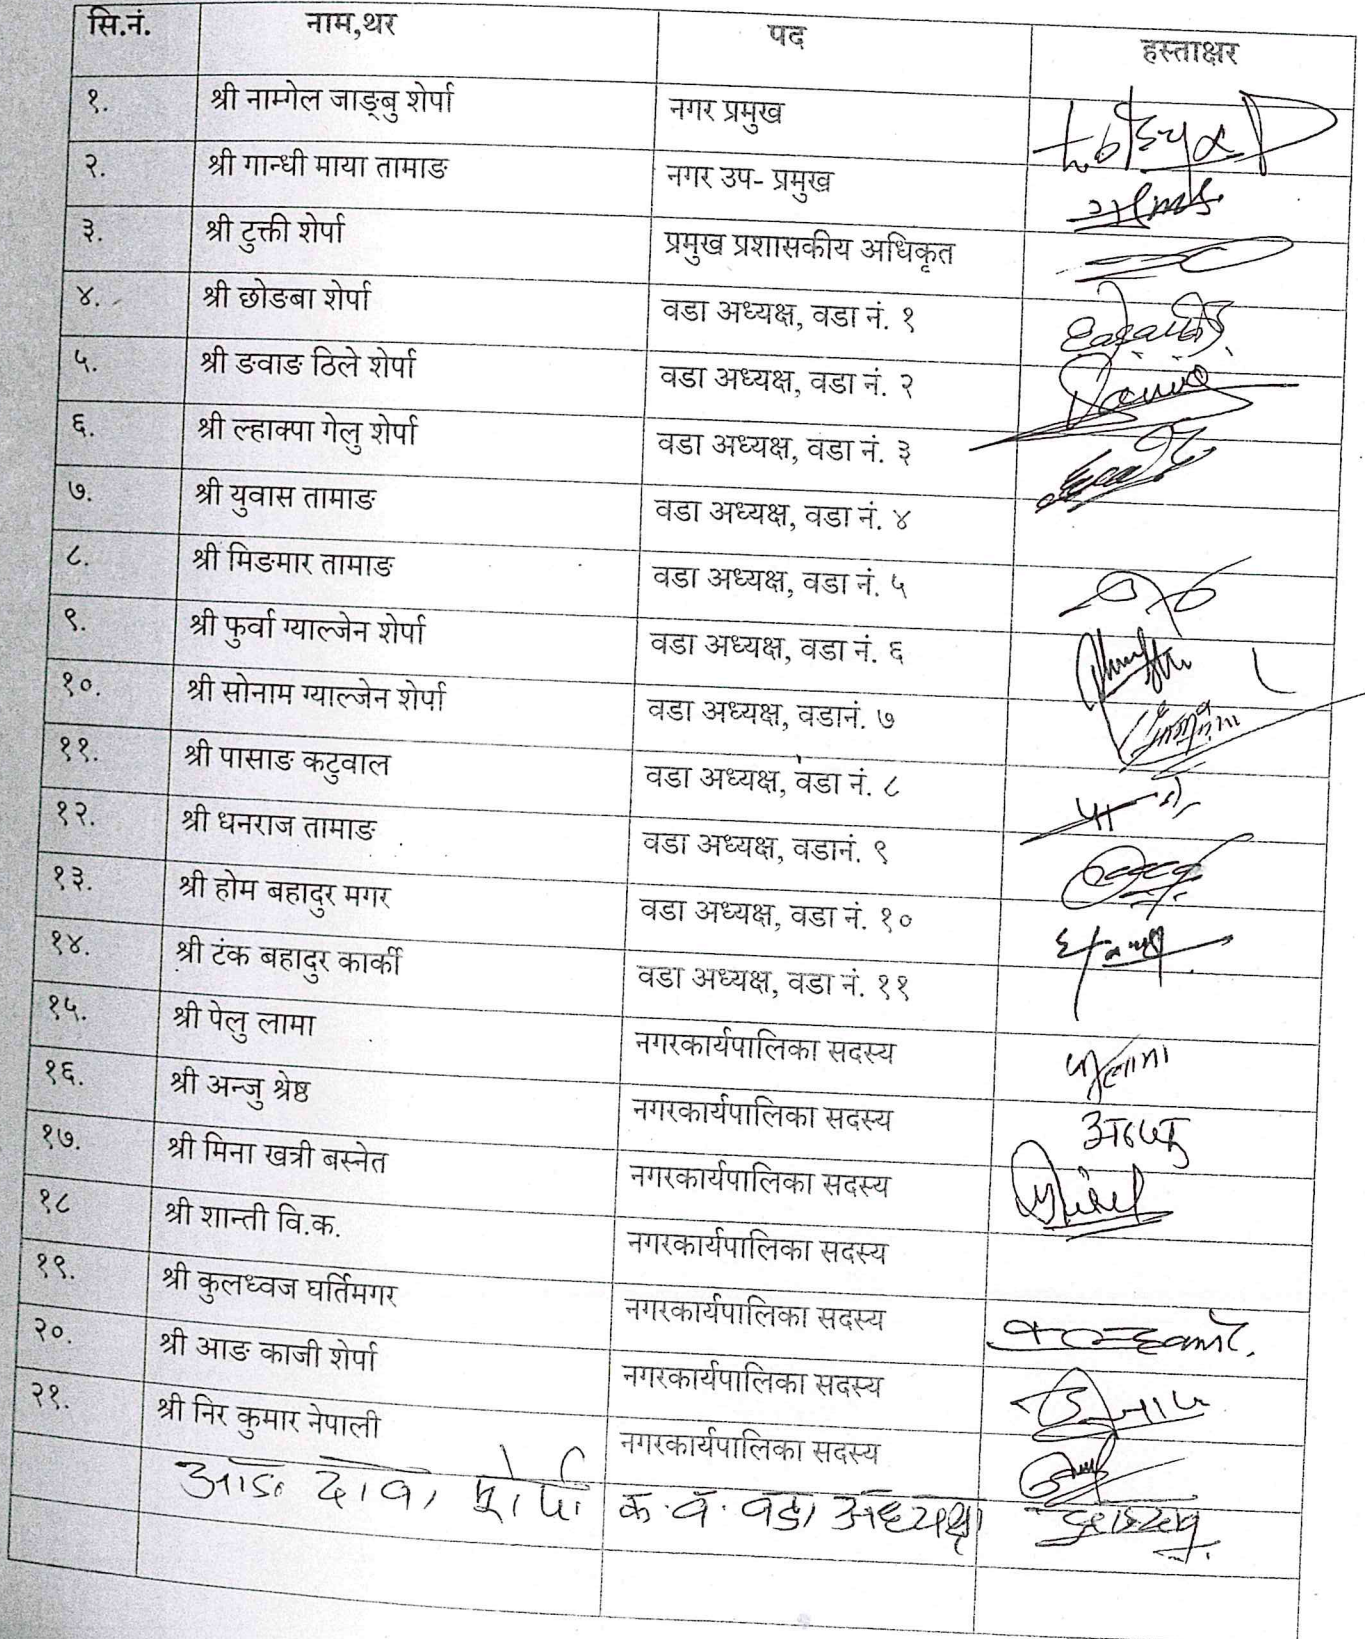 सि.नं. नाम,थर पद हस्ताक्षर
१. श्री नाम्गेल जाङ्बु शेर्पा नगर प्रमुख
२. श्री गान्धी माया तामाङ नगर उप- प्रमुख
३. श्री टुक्ती शेर्पा प्रमुख प्रशासकीय अधिकृत
४. श्री छोङबा शेर्पा वडा अध्यक्ष, वडा नं. १
५. श्री ङवाङ ठिले शेर्पा वडा अध्यक्ष, वडा नं. २
६. श्री ल्हाक्पा गेलु शेर्पा वडा अध्यक्ष, वडा नं. ३
७. श्री युवास तामाङ वडा अध्यक्ष, वडा नं. ४
८. श्री मिङमार तामाङ वडा अध्यक्ष, वडा नं. ५
९. श्री फुर्वा ग्याल्जेन शेर्पा वडा अध्यक्ष, वडा नं. ६
१०. श्री सोनाम ग्याल्जेन शेर्पा वडा अध्यक्ष, वडानं. ७
११. श्री पासाङ कटुवाल वडा अध्यक्ष, वडा नं. ८
१२. श्री धनराज तामाङ वडा अध्यक्ष, वडानं. ९
१३. श्री होम बहादुर मगर वडा अध्यक्ष, वडा नं. १०
१४. श्री टंक बहादुर कार्की वडा अध्यक्ष, वडा नं. ११
१५. श्री पेलु लामा नगरकार्यपालिका सदस्य
१६. श्री अन्जु श्रेष्ठ नगरकार्यपालिका सदस्य अन्जु
१७. श्री मिना खत्री बस्नेत नगरकार्यपालिका सदस्य
१८ श्री शान्ती वि.क. नगरकार्यपालिका सदस्य
१९. श्री कुलध्वज घर्तिमगर नगरकार्यपालिका सदस्य
२०. श्री आङ काजी शेर्पा नगरकार्यपालिका सदस्य
२१. श्री निर कुमार नेपाली नगरकार्यपालिका सदस्य
आङ दावा शेर्पा का.वा. वडा अध्यक्ष